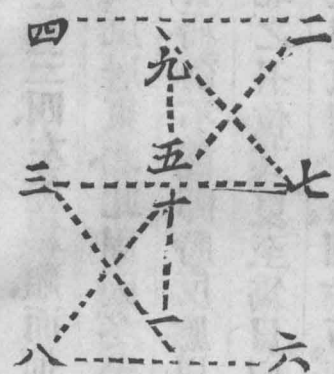 四 二
九
五
三 七
十
一
八 六